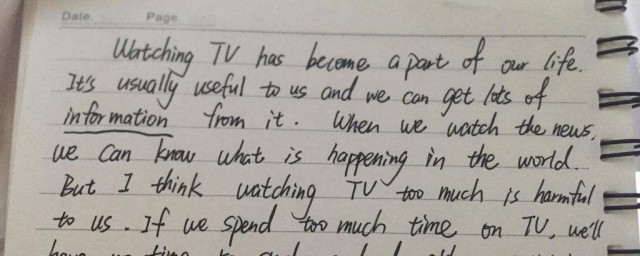 Date. Page.
Watching TV has become a part of our life.
It's usually useful to us and we can get lots of
information from it. When we watch the news,
we can know what is happening in the world.
But I think watching TV too much is harmful
to us. If we spend too much time on TV, we'll